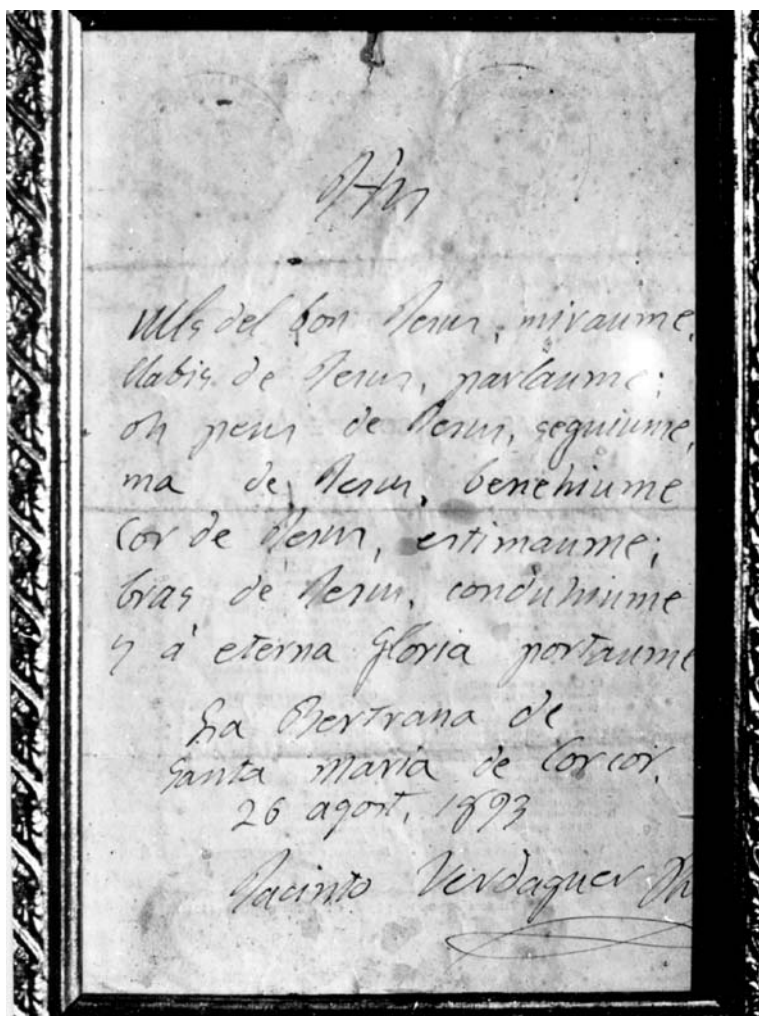 JHS
Ulls del bon Jesus, miraume,
llabis de Jesus, parlaume;
oh peus de Jesus, seguiume,
ma de Jesus, benehiume
Cor de Jesus, estimaume;
bras de Jesus, conduhiume
y á eterna gloria portaume
La Bertrana de
Santa Maria de Corcor.
26 agost, 1893
Jacinto Verdaguer